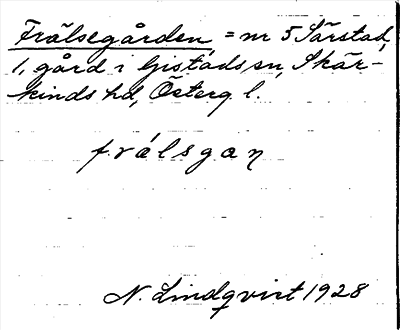 Frälsegården = nr 5 Särstad,
1, gård i Gistads sn, Skär-
kinds hd, Österg. l.
frálsgaɳ
N. Lindqvist 1928